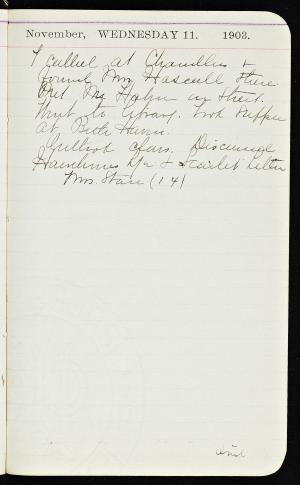 November, WEDNESDAY 11. 1903.
I called at Chandlers &
found Mrs Hascall there
Met Mrs in street.
Went to library. Took supper
at
class. Discussed
Hawthornes life & Scarlet Letter
Mrs. Starr (14)